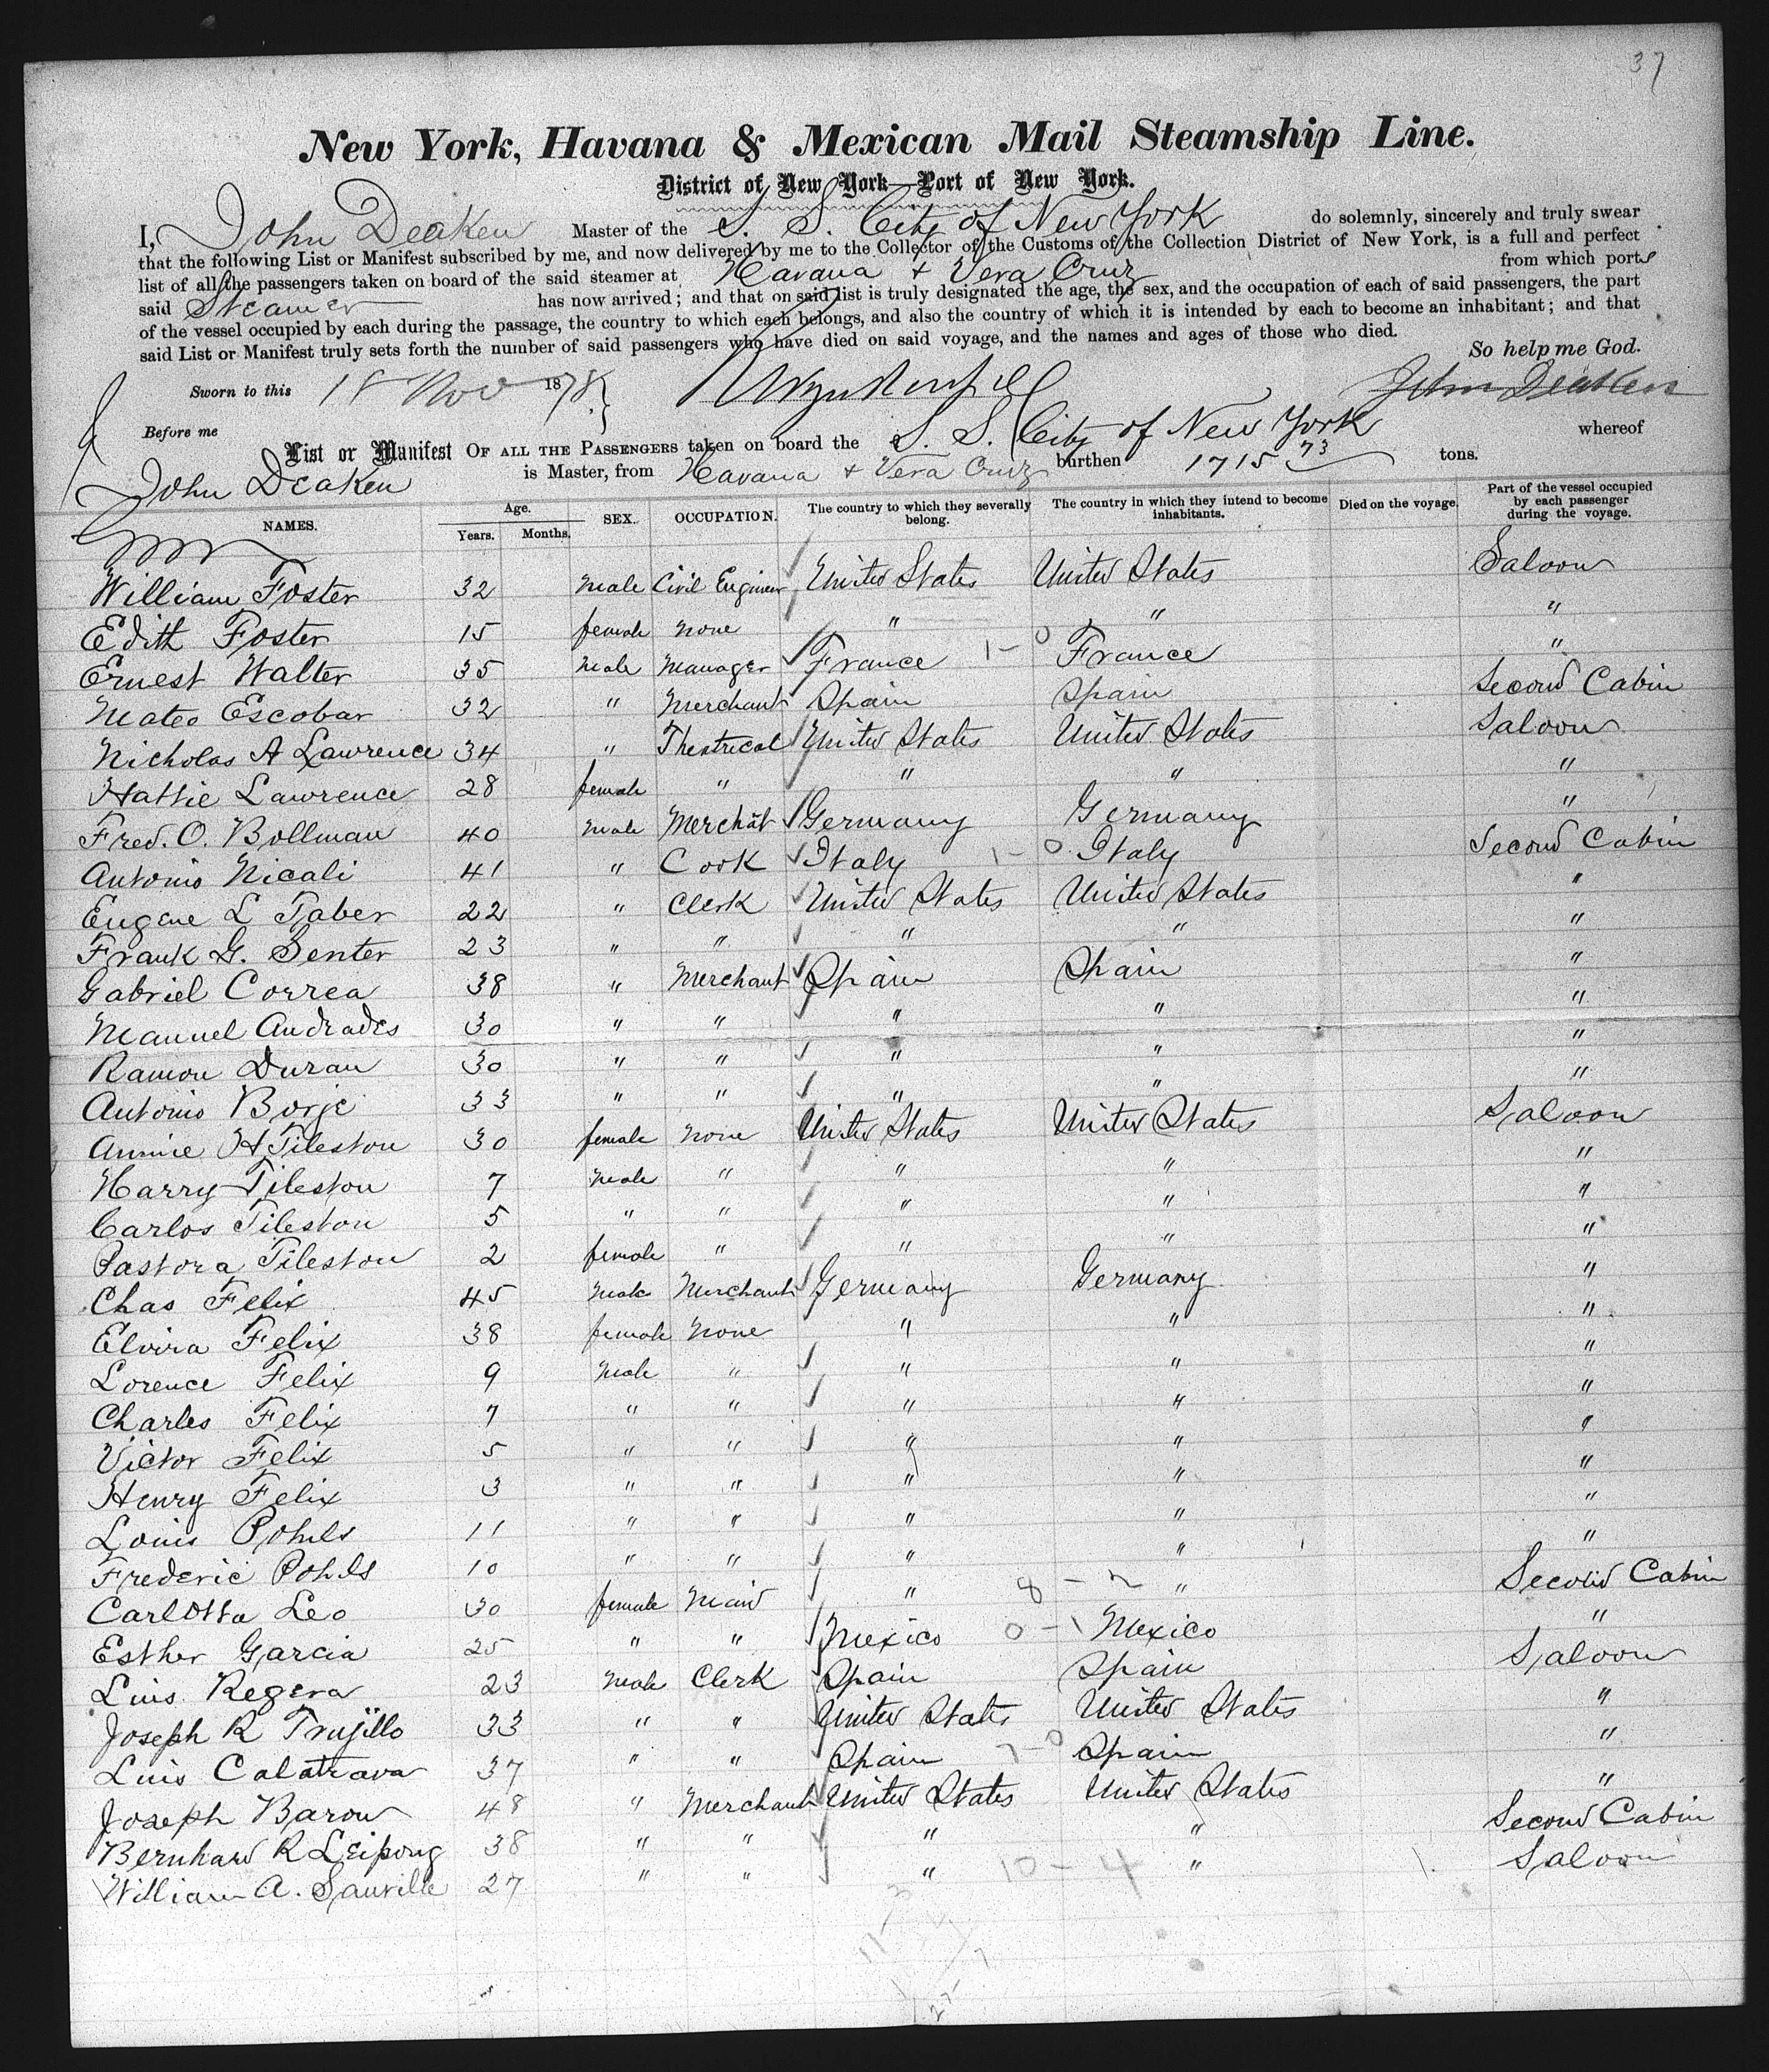 37
New York, Havana & Mexican Mail Steamship Line.
District of New York—Port of New York.
I, John Deaken Master of the S. S. City of New York do solemnly, sincerely and truly swear
that the following List or Manifest subscribed by me, and now delivered by me to the Collector of the Customs of the Collection District of New York, is a full and perfect
list of all the passengers taken on board of the said steamer at Havana + Vera Cruz from which ports
said Steamer has now arrived; and that on said list is truly designated the age, the sex, and the occupation of each of said passengers, the part
of the vessel occupied by each during the passage, the country to which each belongs, and also the country of which it is intended by each to become an inhabitant; and that
said List or Manifest truly sets forth the number of said passengers who have died on said voyage, and the names and ages of those who died.
So help me God.
Sworn to this 18 Nov 1878. John Deaken
Before me
List or Manifest OF ALL THE PASSENGERS taken on board the S. S. City of New York whereof
John Deaken is Master, from Havana + Vera Cruz burthen 1715 73 tons.
NAMES. Age. Years. Months. SEX. OCCUPATION. The country to which they severally belong. The country in which they intend to become inhabitants. Died on the voyage. Part of the vessel occupied by each passenger during the voyage.
William Foster 32 Male Civil Engineer United States United States Saloon
Edith Foster 15 female None " " "
Ernest Walter 35 Male Manager France 1-0 France "
Mateo Escobar 32 " Merchant Spain Spain Second Cabin
Nicholas A Lawrence 34 " Theatrical United States United States Saloon
Hattie Lawrence 28 female " " " "
Fred. O. Bollman 40 Male Merchat Germany Germany "
Antonio Nicali 41 " Cook Italy 1-0 Italy Second Cabin
Eugene L Taber 22 " Clerk United States United States "
Frank G. Senter 23 " " " " "
Gabriel Correa 38 " Merchant Spain Spain "
Manuel Andrades 30 " " " " "
Ramon Duran 30 " " " " "
Antonio Borje 33 " " " " "
Annie H Tileston 30 female None United States United States Saloon
Harry Tileston 7 Male " " " "
Carlos Tileston 5 " " " " "
Pastora Tileston 2 female " " " "
Chas Felix 45 Male Merchant Germany Germany "
Elvira Felix 38 female None " " "
Lorence Felix 9 Male " " " "
Charles Felix 7 " " " " "
Victor Felix 5 " " " " "
Henry Felix 3 " " " " "
Louis Pohls 11 " " " " "
Frederic Pohls 10 " " " " "
Carlotta Leo 30 female Maid " 8-2 " Second Cabin
Esther Garcia 25 " " Mexico 0-1 Mexico "
Luis Regera 23 Male Clerk Spain Spain Saloon
Joseph R Trujillo 33 " " United States United States "
Luis Calatrava 37 " " Spain 7-0 Spain "
Joseph Baron 48 " Merchant United States United States "
Bernhard R Leipzig 38 " " " " Second Cabin
William A. Sauville 27 " " " 10-4 " Saloon
27